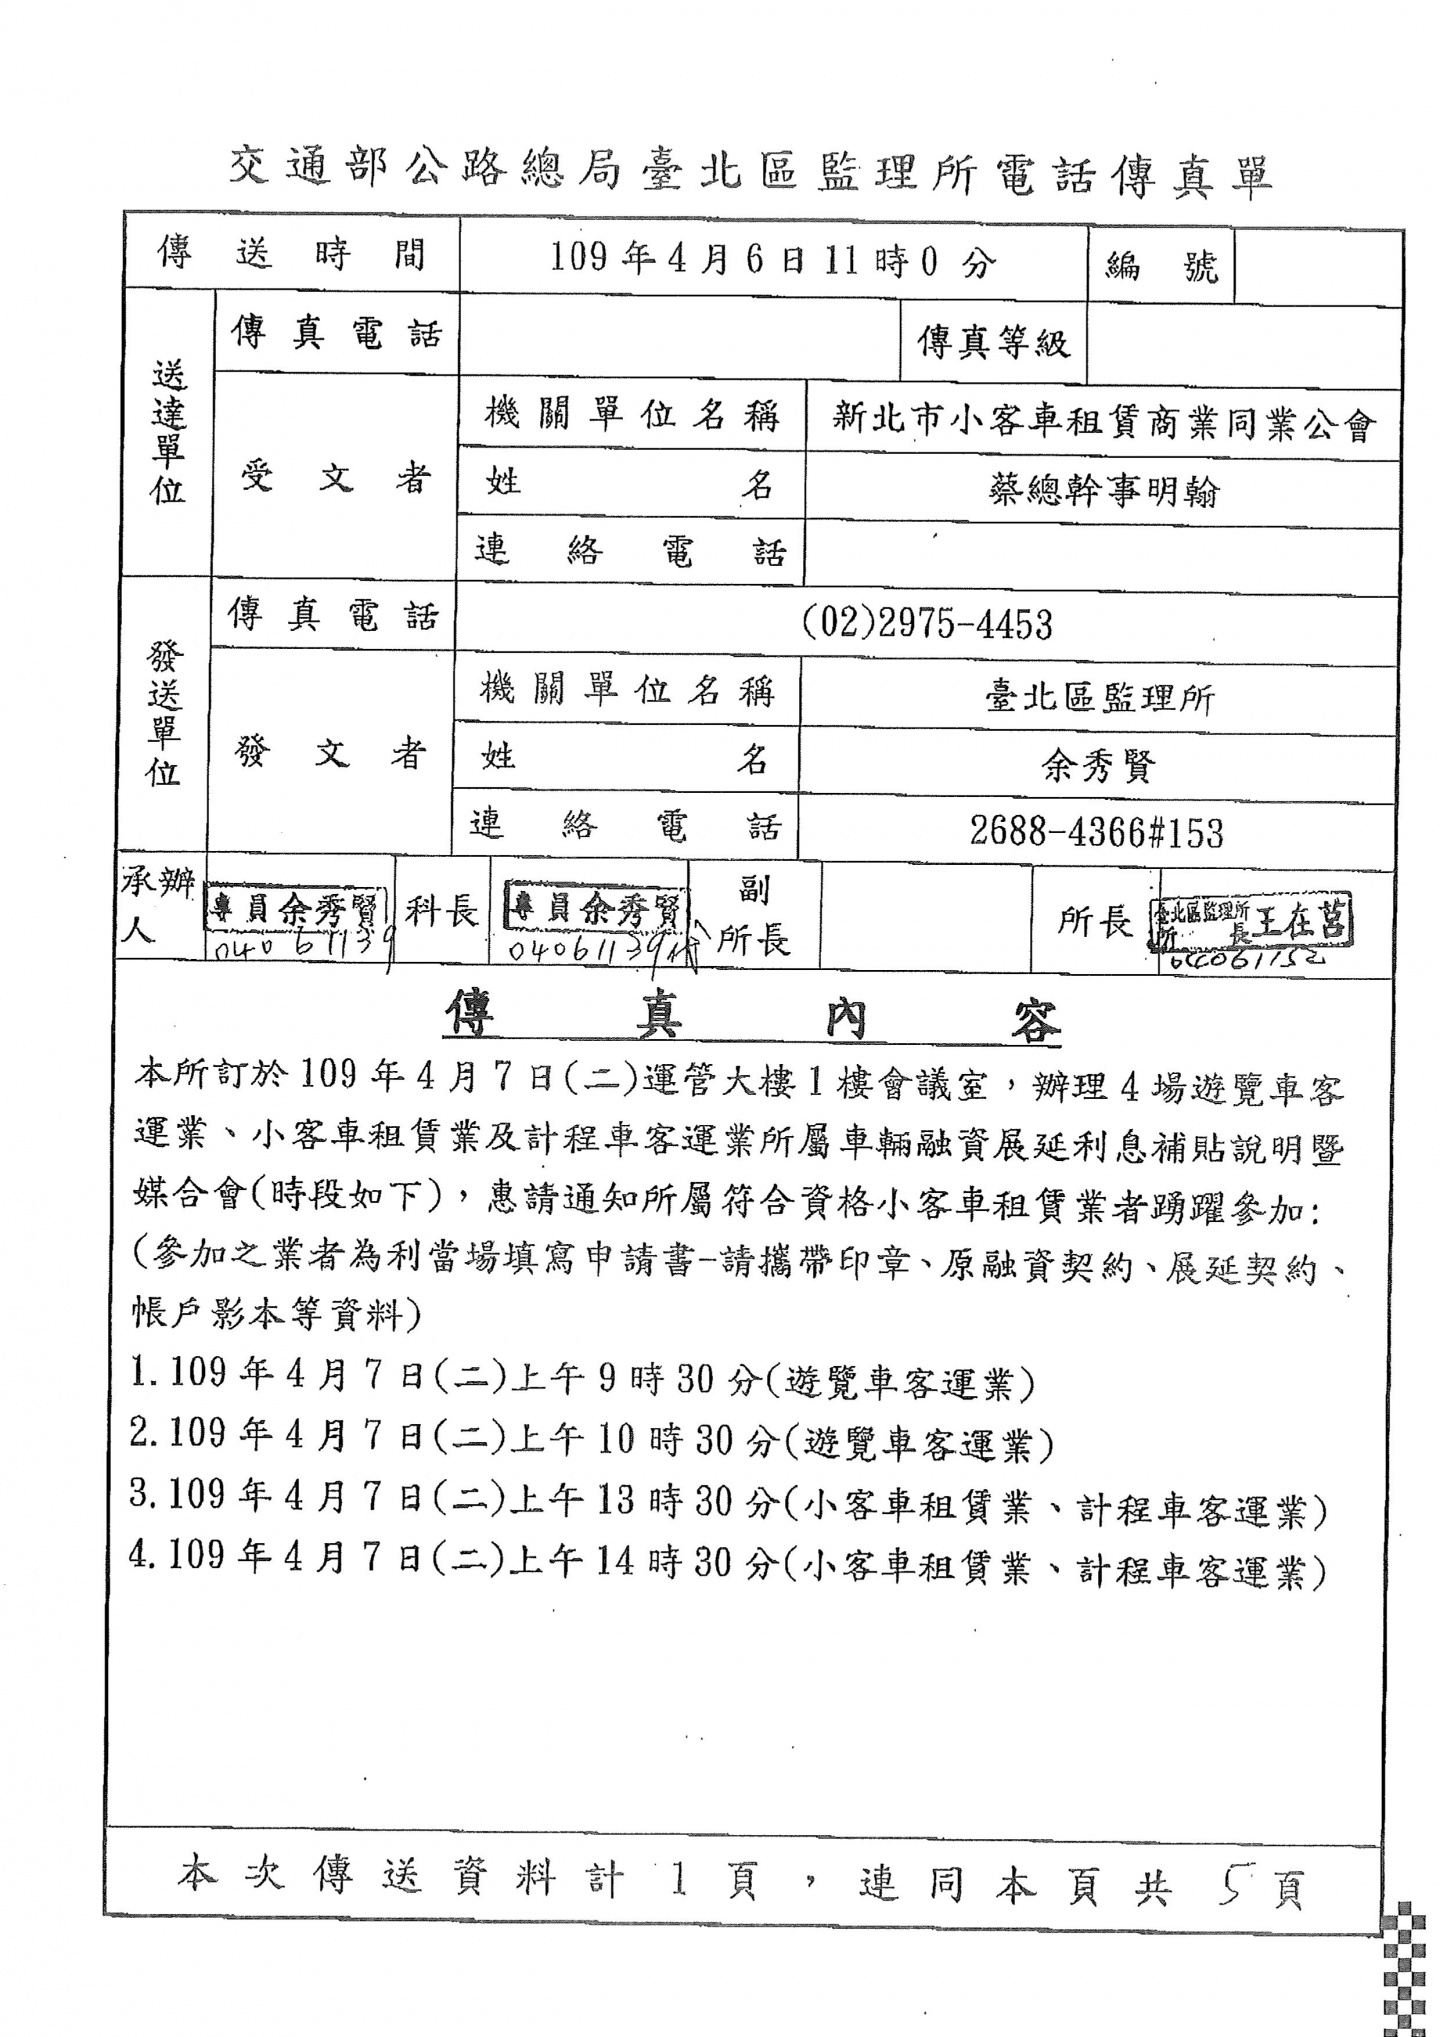 交通部公路總局臺北區監理所電話傳真單
傳送時間 109年4月6日11時0分 編號
送達單位 傳真電話 傳真等級
受文者 機關單位名稱 新北市小客車租賃商業同業公會
姓名 蔡總幹事明翰
連絡電話
發送單位 傳真電話 (02)2975-4453
發文者 機關單位名稱 臺北區監理所
姓名 余秀賢
連絡電話 2688-4366#153
承辦人 專員余秀賢 04061139 科長 專員余秀賢 04061139代 副所長 所長 臺北區監理所所長王在莒
傳真內容
本所訂於109年4月7日(二)運管大樓1樓會議室，辦理4場遊覽車客
運業、小客車租賃業及計程車客運業所屬車輛融資展延利息補貼說明暨
媒合會(時段如下)，惠請通知所屬符合資格小客車租賃業者踴躍參加:
(參加之業者為利當場填寫申請書-請攜帶印章、原融資契約、展延契約、
帳戶影本等資料)
1.109年4月7日(二)上午9時30分(遊覽車客運業)
2.109年4月7日(二)上午10時30分(遊覽車客運業)
3.109年4月7日(二)上午13時30分(小客車租賃業、計程車客運業)
4.109年4月7日(二)上午14時30分(小客車租賃業、計程車客運業)
本次傳送資料計1頁，連同本頁共5頁